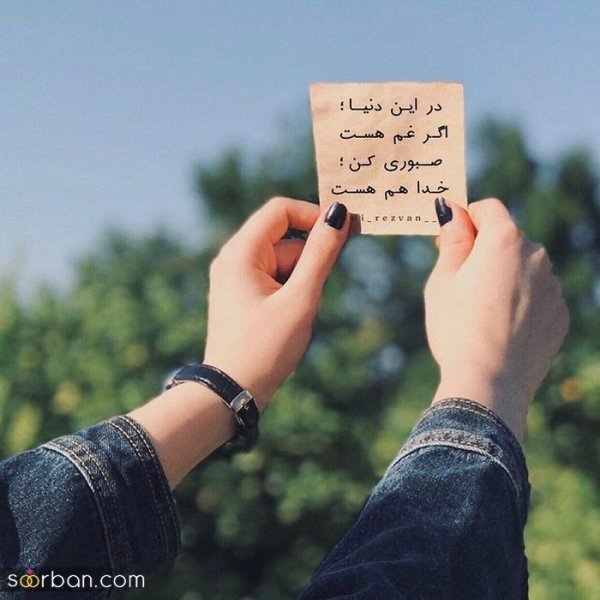 در این دنیا؛
اگر غم هست
صبوری کن؛
خدا هم هست
i_rezvan__
soorban.com